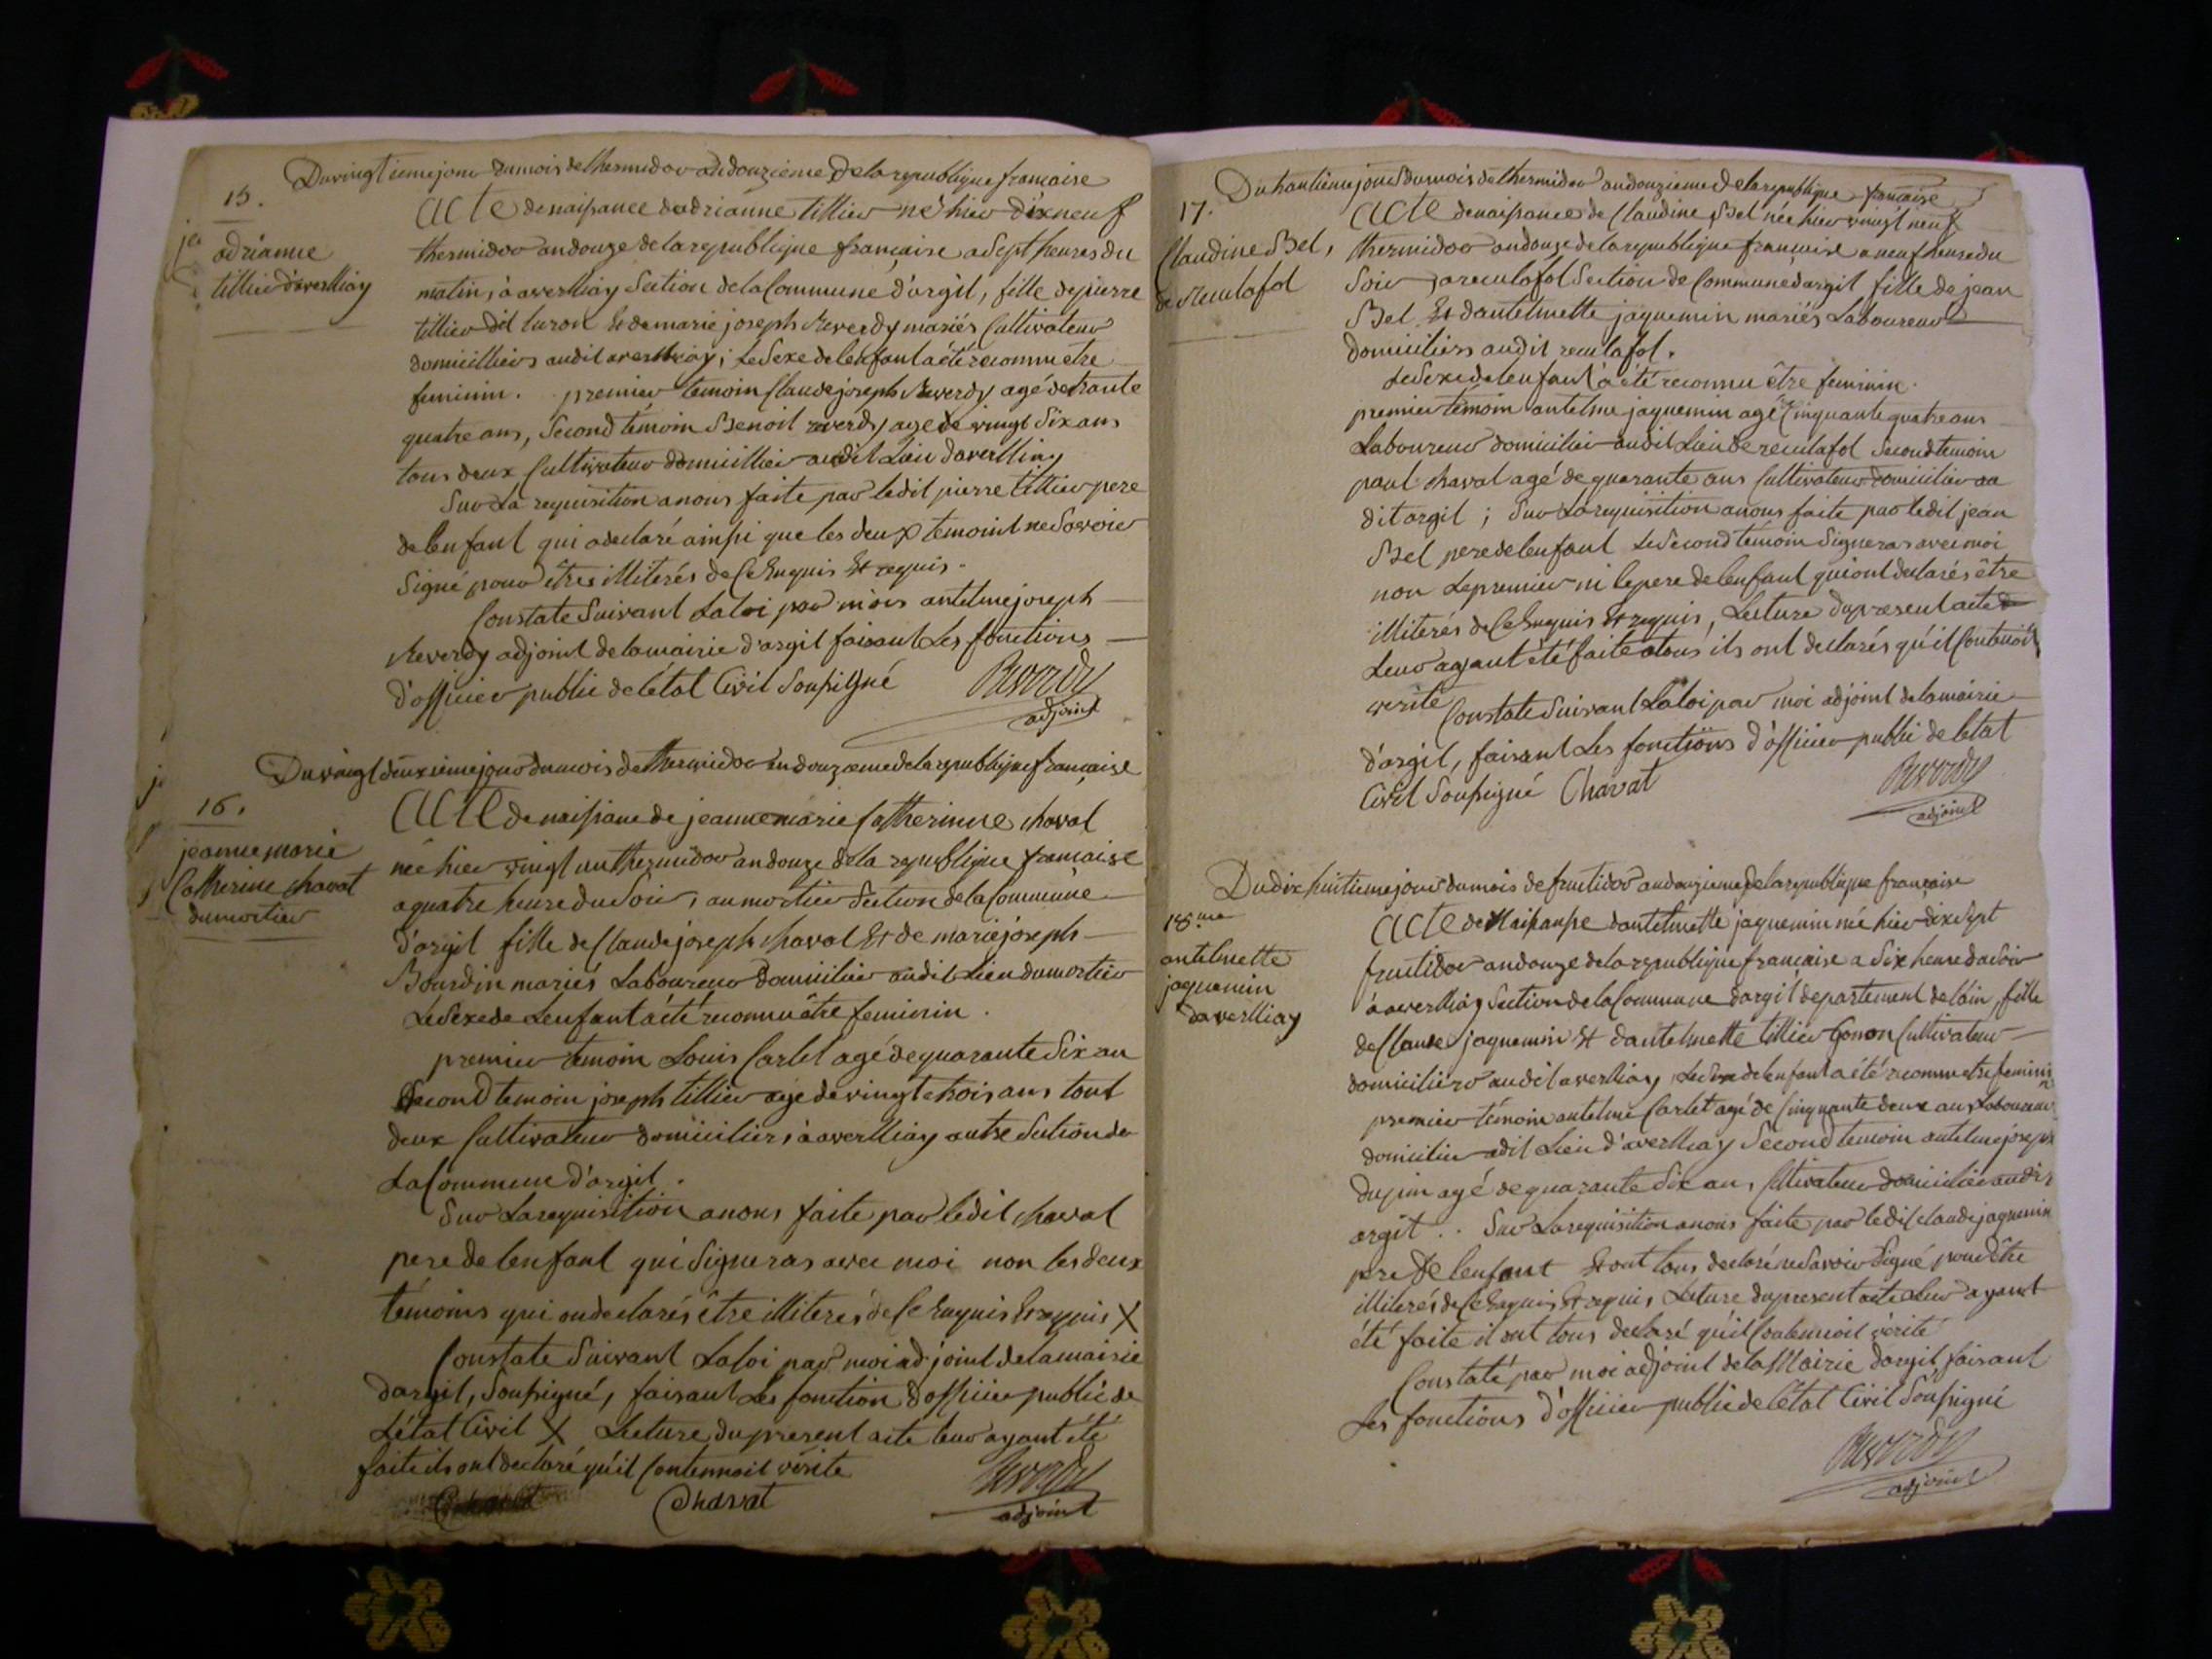 Du vingtieme jour du mois de thermidor an douzieme de la republique francaise
15.
adrianne
tillier d'averlliay
Acte de naissance dadrianne tillier né hier dix neuf
thermidor an douze de la republique française a Sept heures du
matin, à averlliay Section de la Commune d'argil, fille de pierre
tillier dit luron Et de marie joseph Reverdy mariés Cultivateur
domicilliers audit averlliay; Le Sexe de lenfant a été reconnu etre
feminin. premier temoin Claude joseph Reverdy agé de trante
quatre ans, Second témoin Benoit reverdy age de vingt Six ans
tous deux Cultivateur domicillier audit Lieu daverlliay
Sur La requisition a nous faite par ledit pierre tillier pere
de lenfant qui a declaré ainsi que les deux temoint ne Savoir
Signé pour êtres illiterés de Ce Enquis Et requis.
Constate Suivant La loi par mois antelme joseph
Reverdy adjoint de la mairie d'argil faisant Les fonctions
d'officier public de létat Civil Soussigné Reverdy
adjoint
Du vingt deuxieme jour du mois de thermidor an douzieme de la republique francaise
16.
jeanne marie
Catherine chavat
du mortier
Acte de naissance de jeanne marie Catherinne chavat
née hier vingt un thermidor an douze de la republique francaise
a quatre heure du Soir, au mortier Section de la Commune
d'argil fille de Claude joseph chavat Et de marie joseph
Bourdin mariés Laboureur domicilier audit Lieu du mortier
Le Sexe de Lenfant a été reconnu être feminin.
premier temoin Louis Carlet agé de quarante Six an
Second temoin joseph tillier age de vingt trois ans tout
deux Cultivateur domiciliers à averlliay autre Section de
La Commune d'argil.
Sur La requisition a nous faite par ledit chavat
pere de lenfant qui Signeras avec moi non les deux
témoins qui on declarés être illiterés de Ce Enquis Et requis X
Constate Suivant La loi par moi adjoint de la mairie
dargil, Soussigné, faisant Les fonction d'officier public de
L'état Civil X Lecture du present acte leur ayant été
faite ils ont declaré qu'il Contennoit vérite
Chavat Reverdy
adjoint
Du trantième jour du mois de thermidor an douzieme de la republique française
17.
Claudine Bel,
de Reculafol
Acte de naissance de Claudine Bel née hier vingt neuf
thermidor an douze de la republique française a neuf heure du
Soir, a reculafol Section de Commune dargil fille de jean
Bel Et dantelmette jaquemin mariés Laboureur
domiciliers audit reculafol.
Le Sexe de lenfant a été reconnu être feminin.
premier témoin antelme jaquemin agé de Cinquante quatre ans
Laboureur domicilier audit Lieu de reculafol Second temoin
paul chavat agé de quarante ans Cultivateur domicilier au
dit argil; Sur La requisition a nous faite par ledit jean
Bel pere de lenfant Le Second témoin Signeras avec moi
non Le premier ni le pere de lenfant qui ont declarés être
illiterés de Ce Enquis Et requis, Lecture du present acte
Leur ayant été faite a tous ils ont declarés qu'il Contenoit
verité
Constate Suivant La loi par moi adjoint de la mairie
d'argil, faisant Les fonctions d'officier public de létat
Civil Soussigné Chavat Reverdy
adjoint
Du dix huitieme jour du mois de fructidor an douzieme de la republique française
18.me
antelmette
jaquemin
daverlliay
Acte de Naissansse dantelmette jaquemin né hier dix Sept
fructidor an douze de la republique francaise a Six heure du Soir
à averlliay Section de la Commune dargil departement de lain, fille
de Claude jaquemin Et dantelmette tillier Gonon Cultivateur
domiciliers audit averlliay, Le Sexe de lenfant a été reconnu etre feminin
premier témoin antelme Carlet agé de Cinquante deux an, Laboureur
domicilier adit Lieu d'averlliay Second temoin antelme joseph
dupin agé de quarante Six an, Cultivateur domicilier audit
argit.. Sur La requisition a nous faite par ledit claude jaquemin
pere de lenfant Et ont tous declaré ne Savoir Signé pour être
illiterés de Ce Enquis Et requis, Lecture du present acte Leur ayant
été faite il ont tous declaré qu'il Contennoit vérite
Constaté par moi adjoint de la Mairie dargil, faisant
Les fonctions d'officier public de létat Civil Soussigné
Reverdy
adjoint